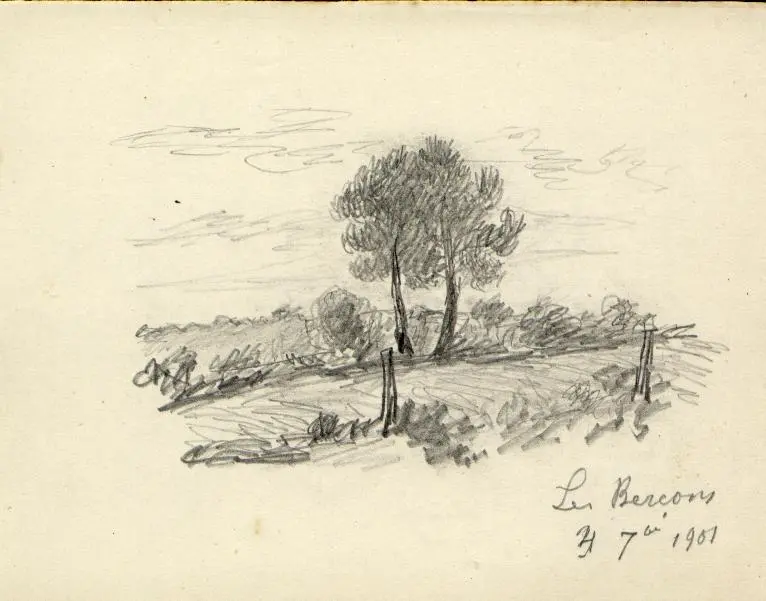 Les Bercons
4 7bre 1901